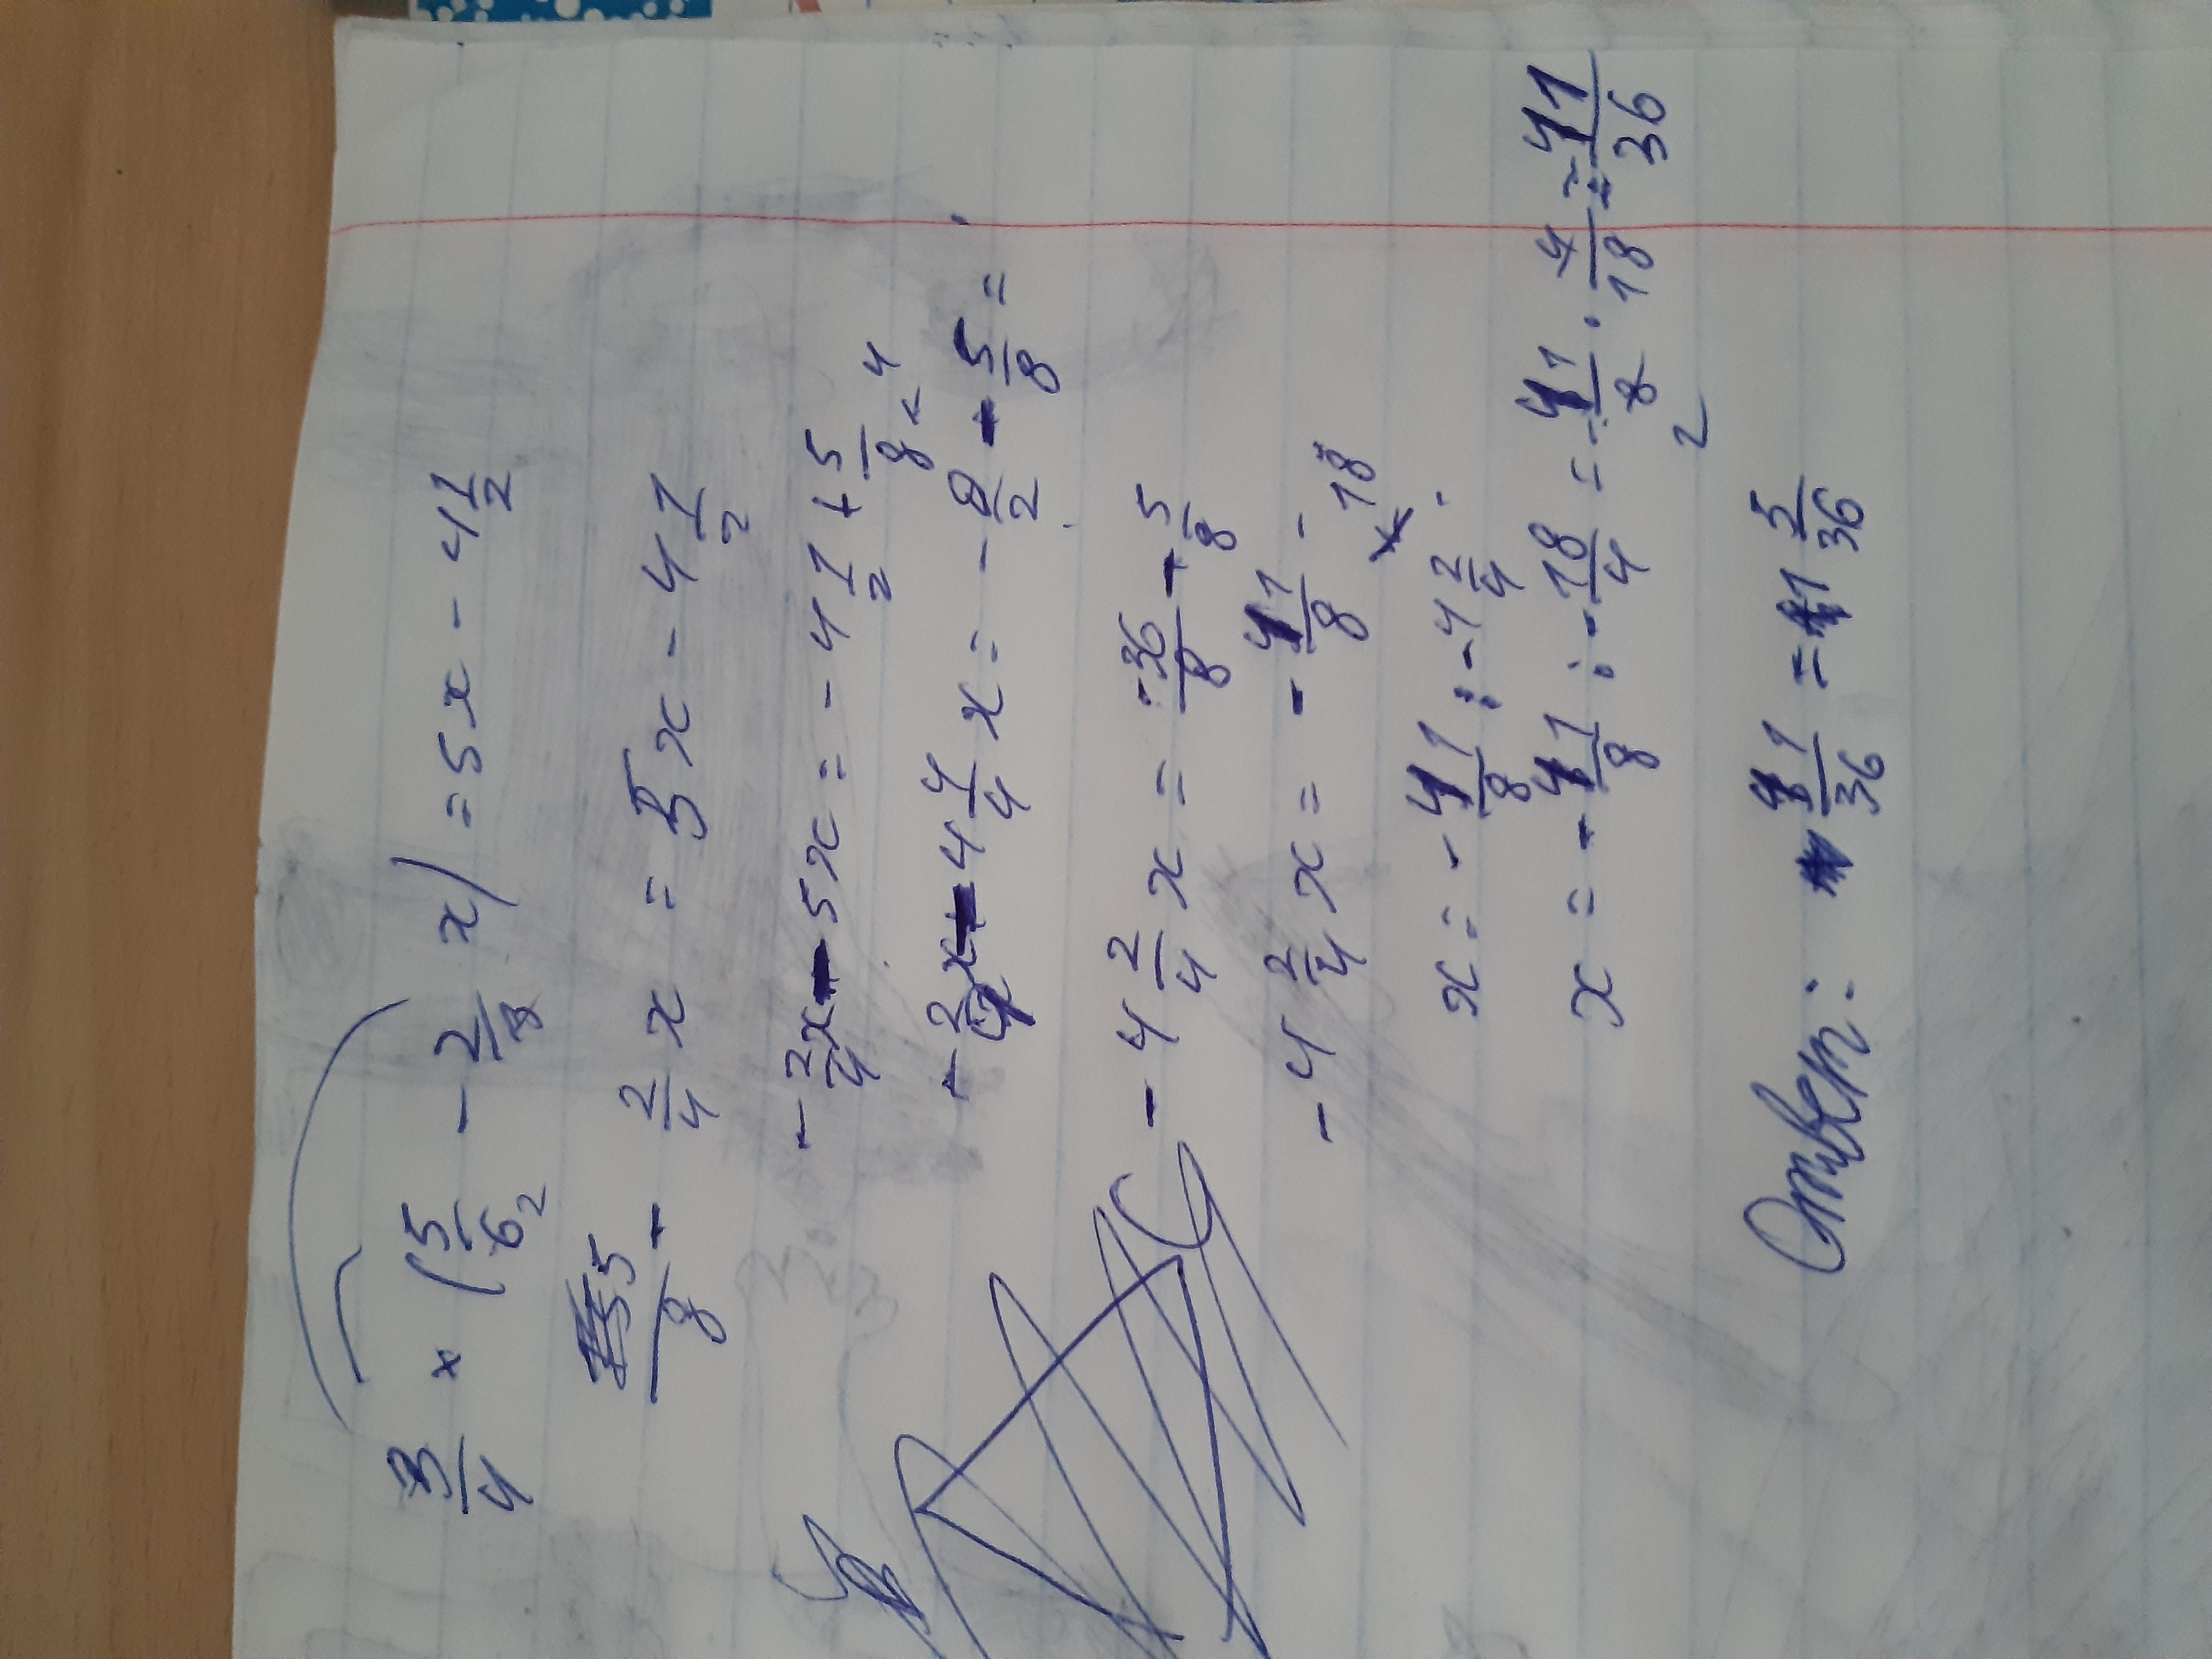 3/4 × (5/6 - 2/3 x) = 5x - 4 1/2
5/8 - 2/4 x = 5x - 4 1/2
- 2/4 x - 5x = - 4 1/2 + 5/8 < 4
- 2/4 x - 4 4/4 x = - 9/2 - 5/8 =
- 4 2/4 x = - 36/8 - 5/8
- 4 2/4 x = - 41/8 - 18
x = - 41/8 : - 4 2/4
x = - 41/8 : - 18/4 = - 41/8 · 4/18 = - 41/36
2
Ответ: 41/36 = 1 5/36